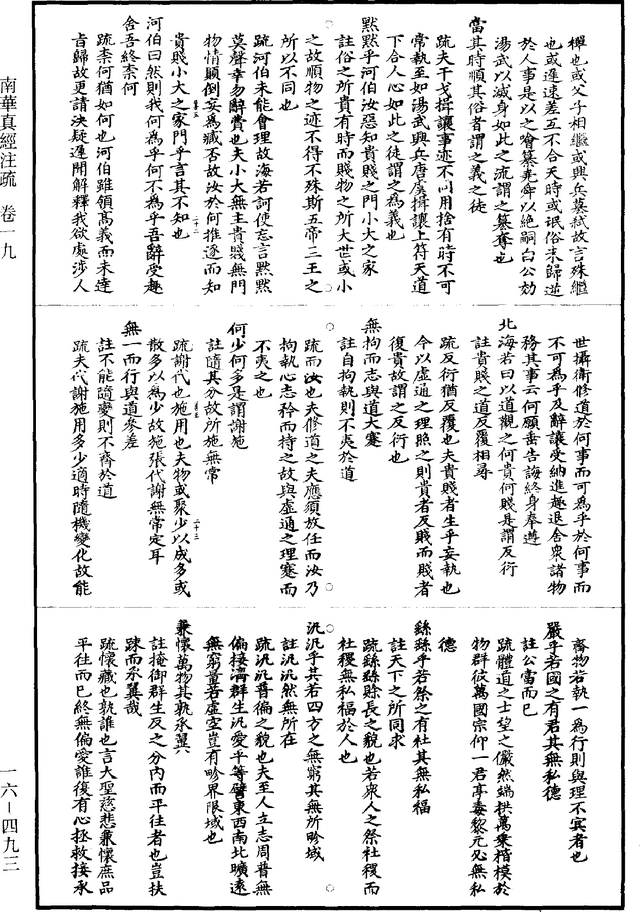 南華真經注疏　卷一九
一六—四九三
禪也或父子相繼或興兵墓弒故言殊繼
也或遲速差互不合天時或氓俗未歸逆
於人事是以之噲篡堯舜以絕嗣白公効
湯武以滅身如此之流謂之篡奪也
當其時順其俗者謂之義之徒
疏夫干戈揖讓事迹不同用捨有時不可
常執至如湯武興兵唐虞揖讓上符天道
下合人心如此之徒謂之為義也
默默乎河伯汝惡知貴賤之門小大之家
註俗之所貴有時而賤物之所大世或小
之故順物之迹不得不殊斯五帝三王之
所以不同也
疏河伯未能會理故海若訶使忘言默默
莫聲幸勿辭費也夫小大無主貴賤無門
物情顛倒妄為臧否故汝於何推逐而知
貴賤小大之家門乎言其不知也
河伯曰然則我何為乎何不為乎吾辭受趣
舍吾終柰何
疏柰何猶如何也河伯雖領高義而未達
旨歸故更請決疑遲聞解釋我欲處涉人
世攝衛修道於何事而可為乎於何事而
不可為乎及辭讓受納進趣退舍衆諸物
務其事云何願垂告誨終身奉遵
北海若曰以道觀之何貴何賤是謂反衍
註貴賤之道反覆相尋
疏反衍猶反覆也夫貴賤者生乎妄執也
今以虛通之理照之則貴者反賤而賤者
復貴故謂之反衍也
無拘而志與道大蹇
註自拘執則不夷於道
疏而汝也夫修道之夫應須放任而汝乃
拘執心志矜而持之故與虛通之理蹇而
不夷之也
何少何多是謂謝施
註隨其分故所施無常
疏謝代也施用也夫物或聚少以成多或
散多以為少故施張代謝無常定耳
無一而行與道參差
註不能隨變則不齊於道
疏夫代謝施用多少適時隨機變化故能
齊物若執一為行則與理不冥者也
嚴乎若國之有君其無私德
註公當而已
疏體道之士望之儼然端拱萬乘楷模於
物群彼萬國宗仰一君亭毒黎元必無私
德
繇繇乎若祭之有社其無私福
註天下之所同求
疏繇繇賒長之貌也若衆人之祭社稷而
社稷無私福於人也
汎汎乎其若四方之無窮其無所畛域
註汎汎然無所在
疏汎汎普徧之貌也夫至人立志周普無
偏接濟群生汎愛平等譬東西南北曠遠
無窮量若虛空豈有畛界限域也
兼懷萬物其孰承翼
註掩御群生反之分內而平往者也豈扶
疎而承翼哉
疏懷藏也孰誰也言大聖慈悲兼懷庶品
平往而已終無偏愛誰復有心拯救接承